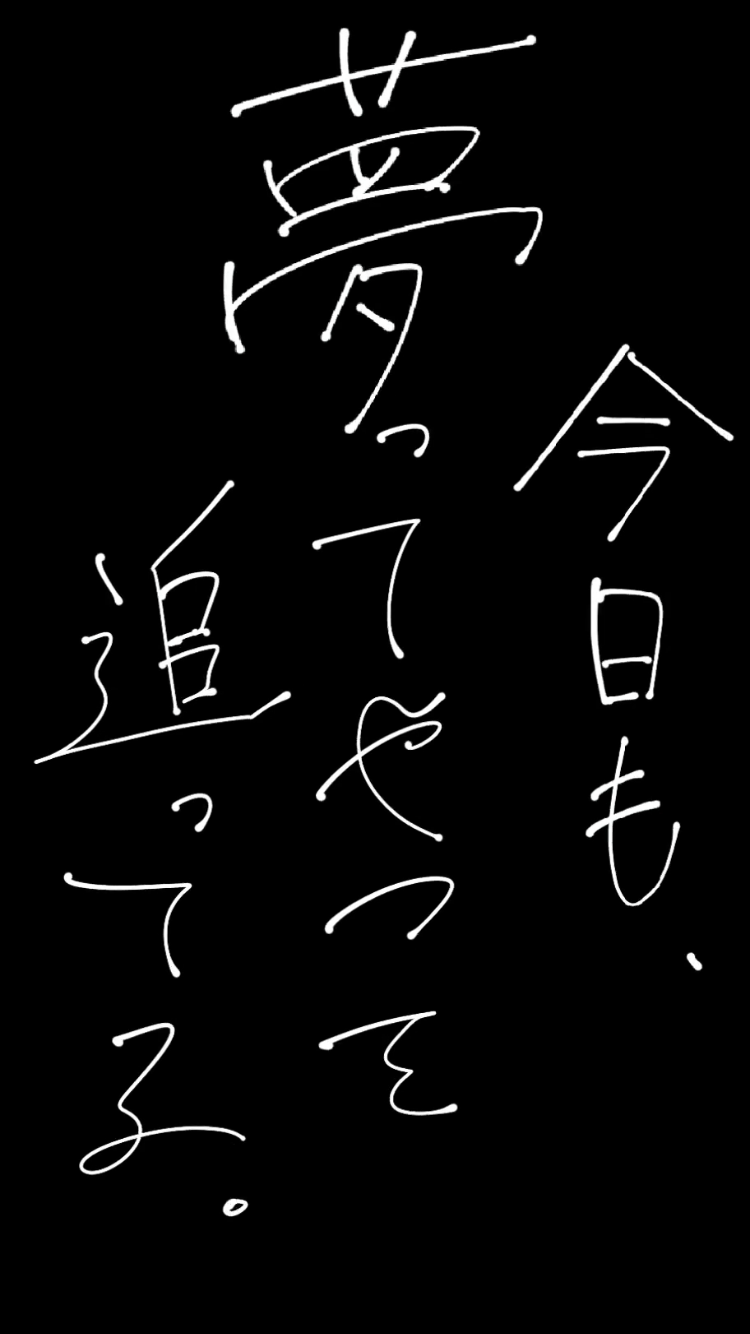 今日も、
夢ってやつを
追ってる。